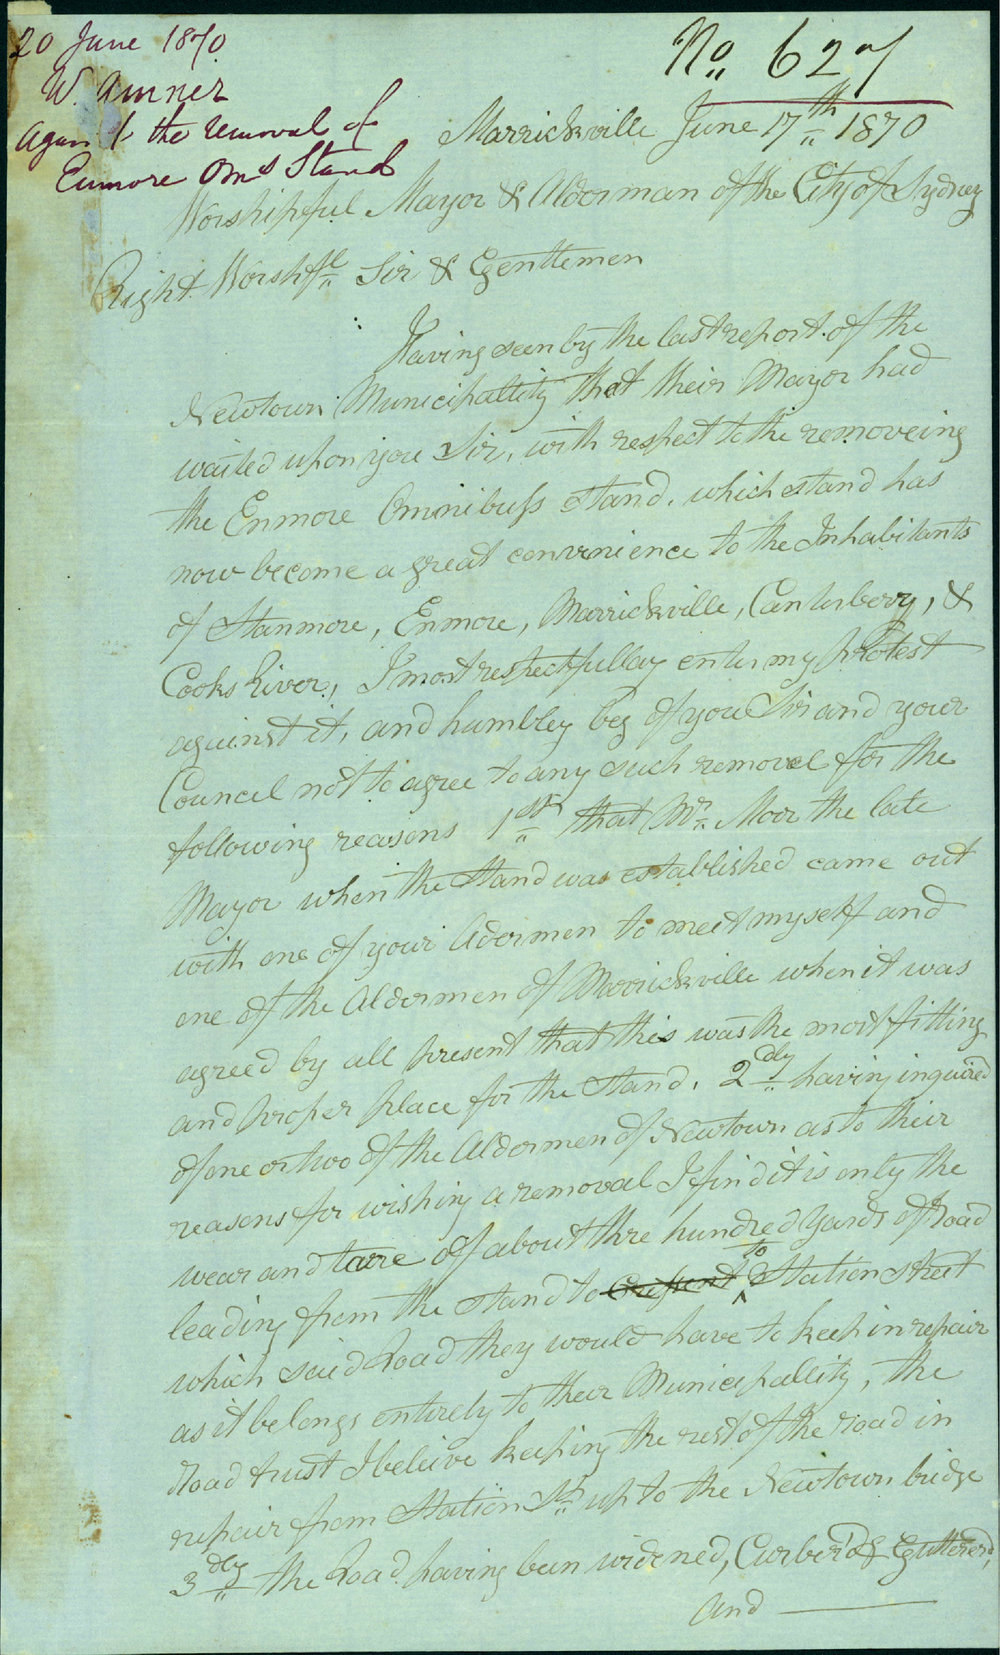 20 June 1870
W. Amner
Against the removal of
Enmore Oms Stand
No 627
Marrickville June 17th 1870
Worshipful Mayor & Aldorman of the City of Sydney
Right Worshfl Sir & Gentlemen
Having seen by the last report of the
Newtown Municipallity that their Mayor had
waited upon you Sir, with respect to the removeing
the Enmore Ominibuss stand, which stand has
now become a great convenience to the Inhabitants
of Stanmore, Enmore, Marrickville, Canterberry, &
Cooks River, I most respectfullay enter my protest
against it, and humbley beg of you Sir and your
Council not to agree to any such removel for the
following reasons 1st that Mr. Moor the late
Mayor when the Stand was established came out
with one of your Adormen to meet myself and
one of the Aldermen of Marrickville when it was
agreed by all present that this was the most fitting
and proper place for the Stand. 2dly having inquired
of one or two of the Aldormen of Newtown as to their
reasons for wishing a removal I find it is only the
wear and tare of about thre hundred yards of Road
leading from the stand to to Station street
which said Road they would have to keep in repair
as it belongs entirely to their Municipallity, the
Road trust I beleive keeping the rest of the road in
repair from Station St up to the Newtown bridge
3dly the Road having been widened, Curber'd & Gutterer'd,
and